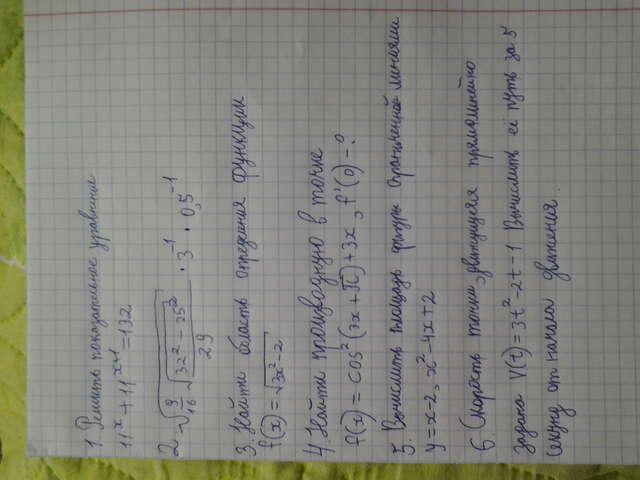 1. Решить показательное уравнение
11^x + 11^(x+1) = 132
2. √(9/16 √(32² - 25²)/29) · 3^(-1) · 0,5^(-1)
3. Найти область определения функции
f(x) = √(3x² - 2)
4. Найти производную в точке
f(x) = cos²(3x + π) + 3x, f'(0) - ?
5. Вычислить площадь фигуры ограниченной линиями
y = x - 2, x² - 4x + 2
6. Скорость точки, движущейся прямолинейно
задана V(t) = 3t² - 2t - 1 Вычислить её путь за 5
секунд от начала движения.